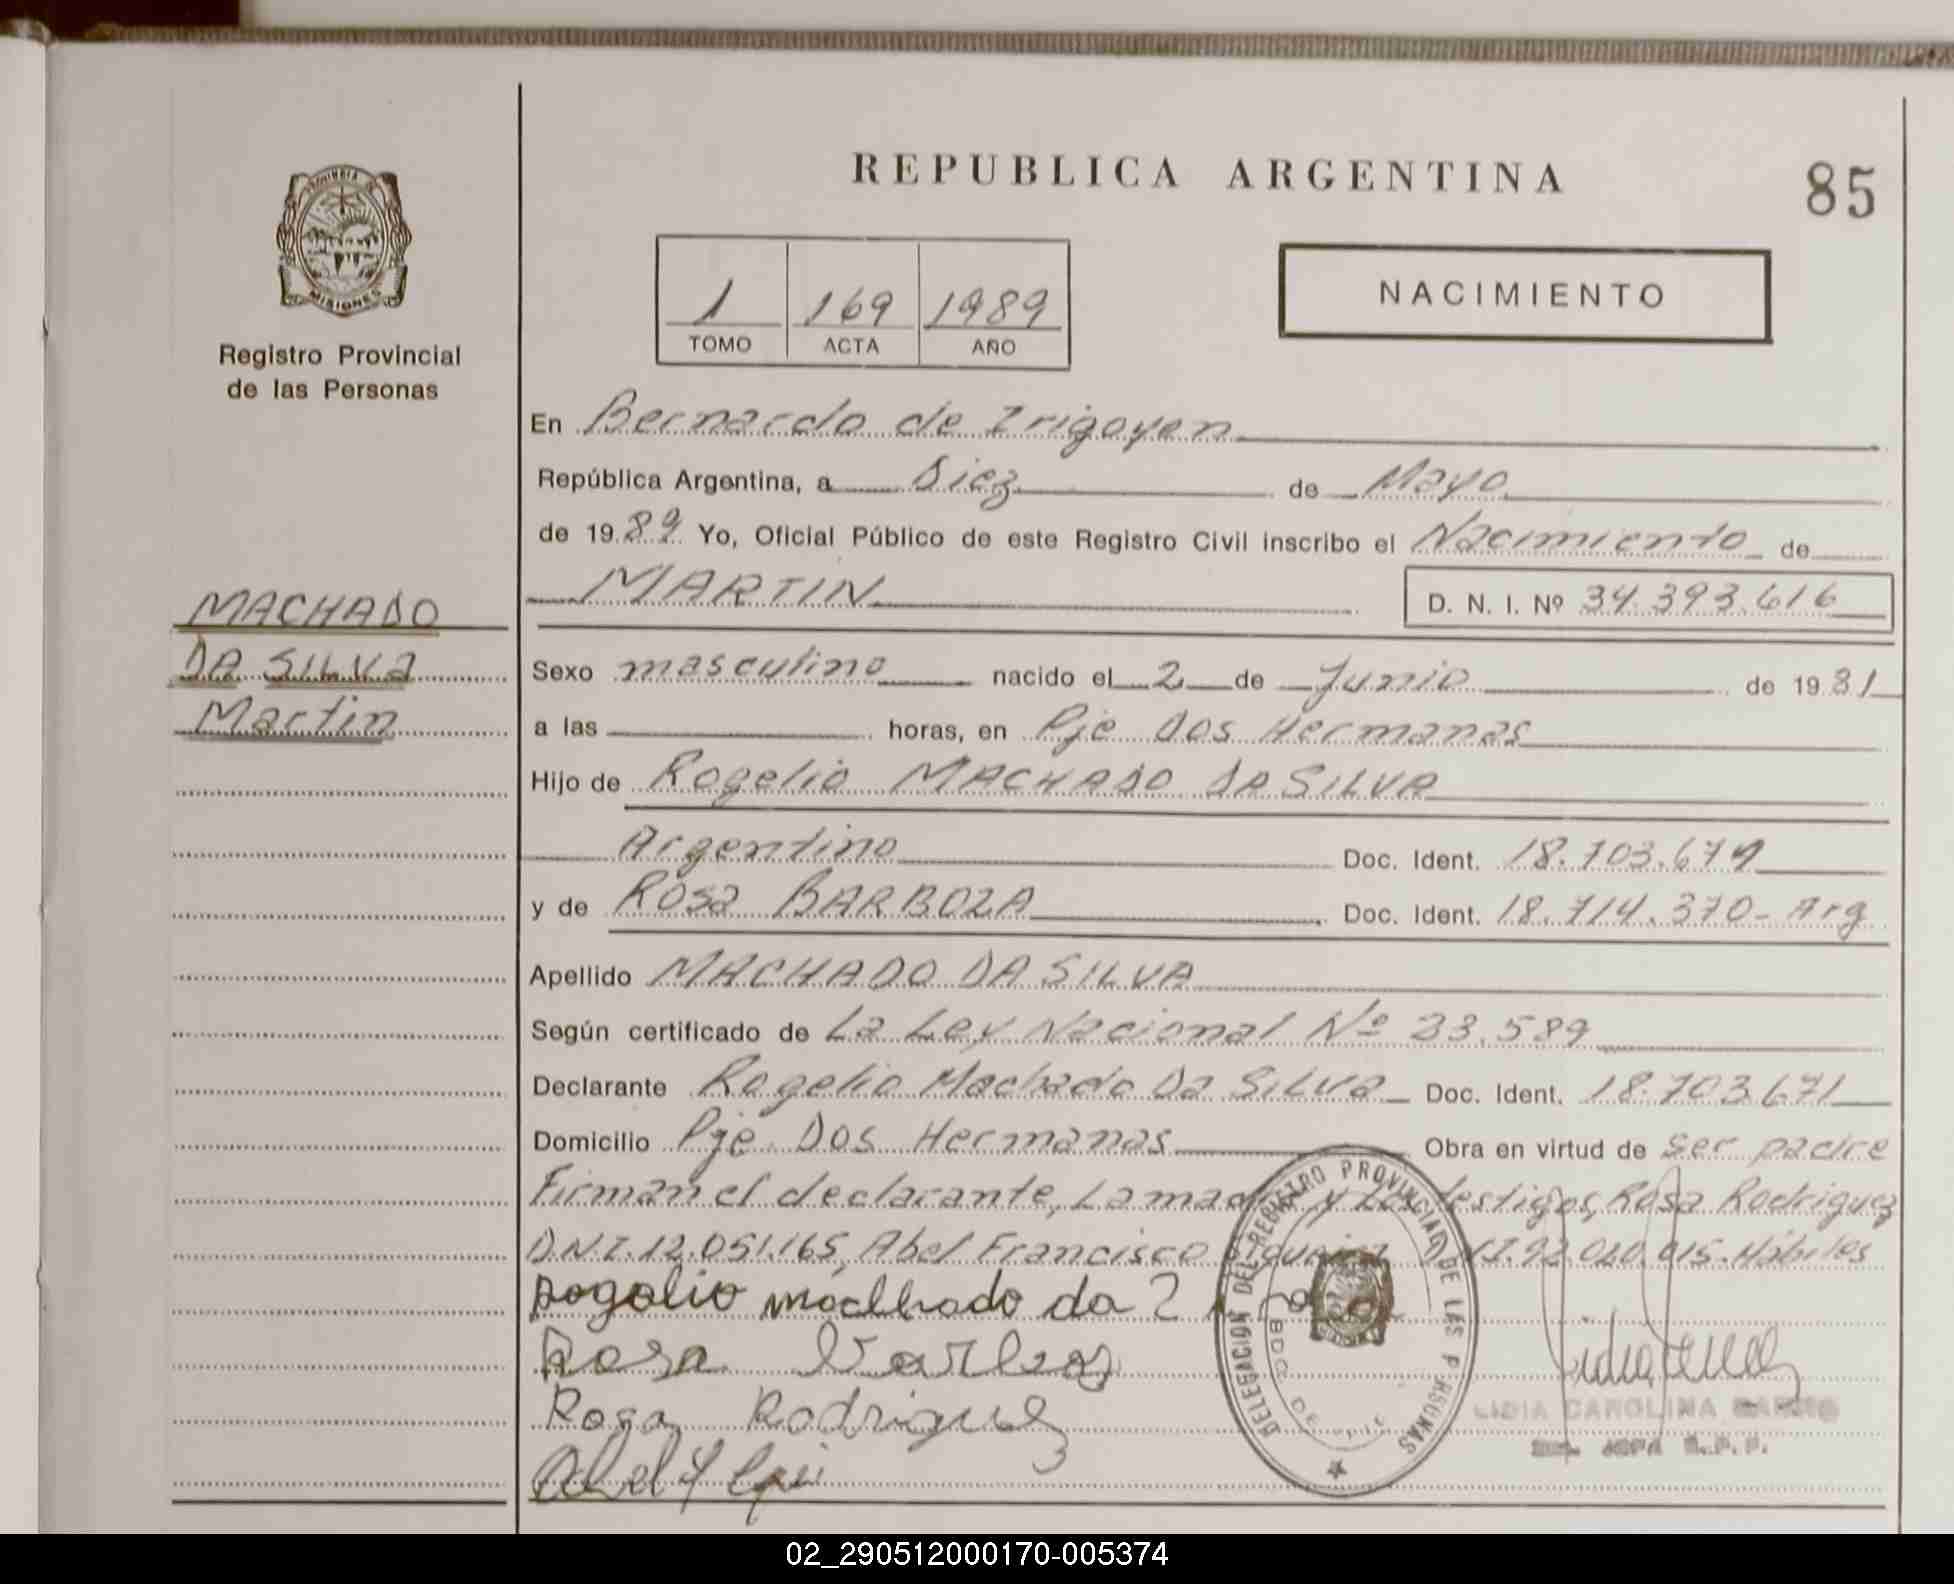 REPUBLICA ARGENTINA
85
PROVINCIA DE
MISIONES
Registro Provincial
de las Personas
1 169 1989
TOMO ACTA AÑO
NACIMIENTO
En Bernardo de Irigoyen
República Argentina, a Diez de Mayo
de 1989 Yo, Oficial Público de este Registro Civil inscribo el Nacimiento de
MARTIN D. N. I. Nº 34.393.616
MACHADO
DA SILVA
Martin
Sexo masculino nacido el 2 de Junio de 1981
a las horas, en Pje Dos Hermanas
Hijo de Rogelio MACHADO DA SILVA
Argentino Doc. Ident. 18.703.671
y de Rosa BARBOZA Doc. Ident. 18.714.370- Arg
Apellido MACHADO DA SILVA
Según certificado de La Ley Nacional Nº 23.589
Declarante Rogelio Machado Da SILVA Doc. Ident. 18.703.671
Domicilio Pje Dos Hermanas Obra en virtud de ser padre
Firman el declarante, La y Los testigos, Rosa Rodriguez
D.N.I. 12.051.165, Abel Francisco Hábiles
Rogelio machado da
Rosa
Rosa Rodriguez
Abel
DELEGACION DEL REGISTRO PROVINCIAL DE LAS PERSONAS
LIDIA CAROLINA
02_290512000170-005374